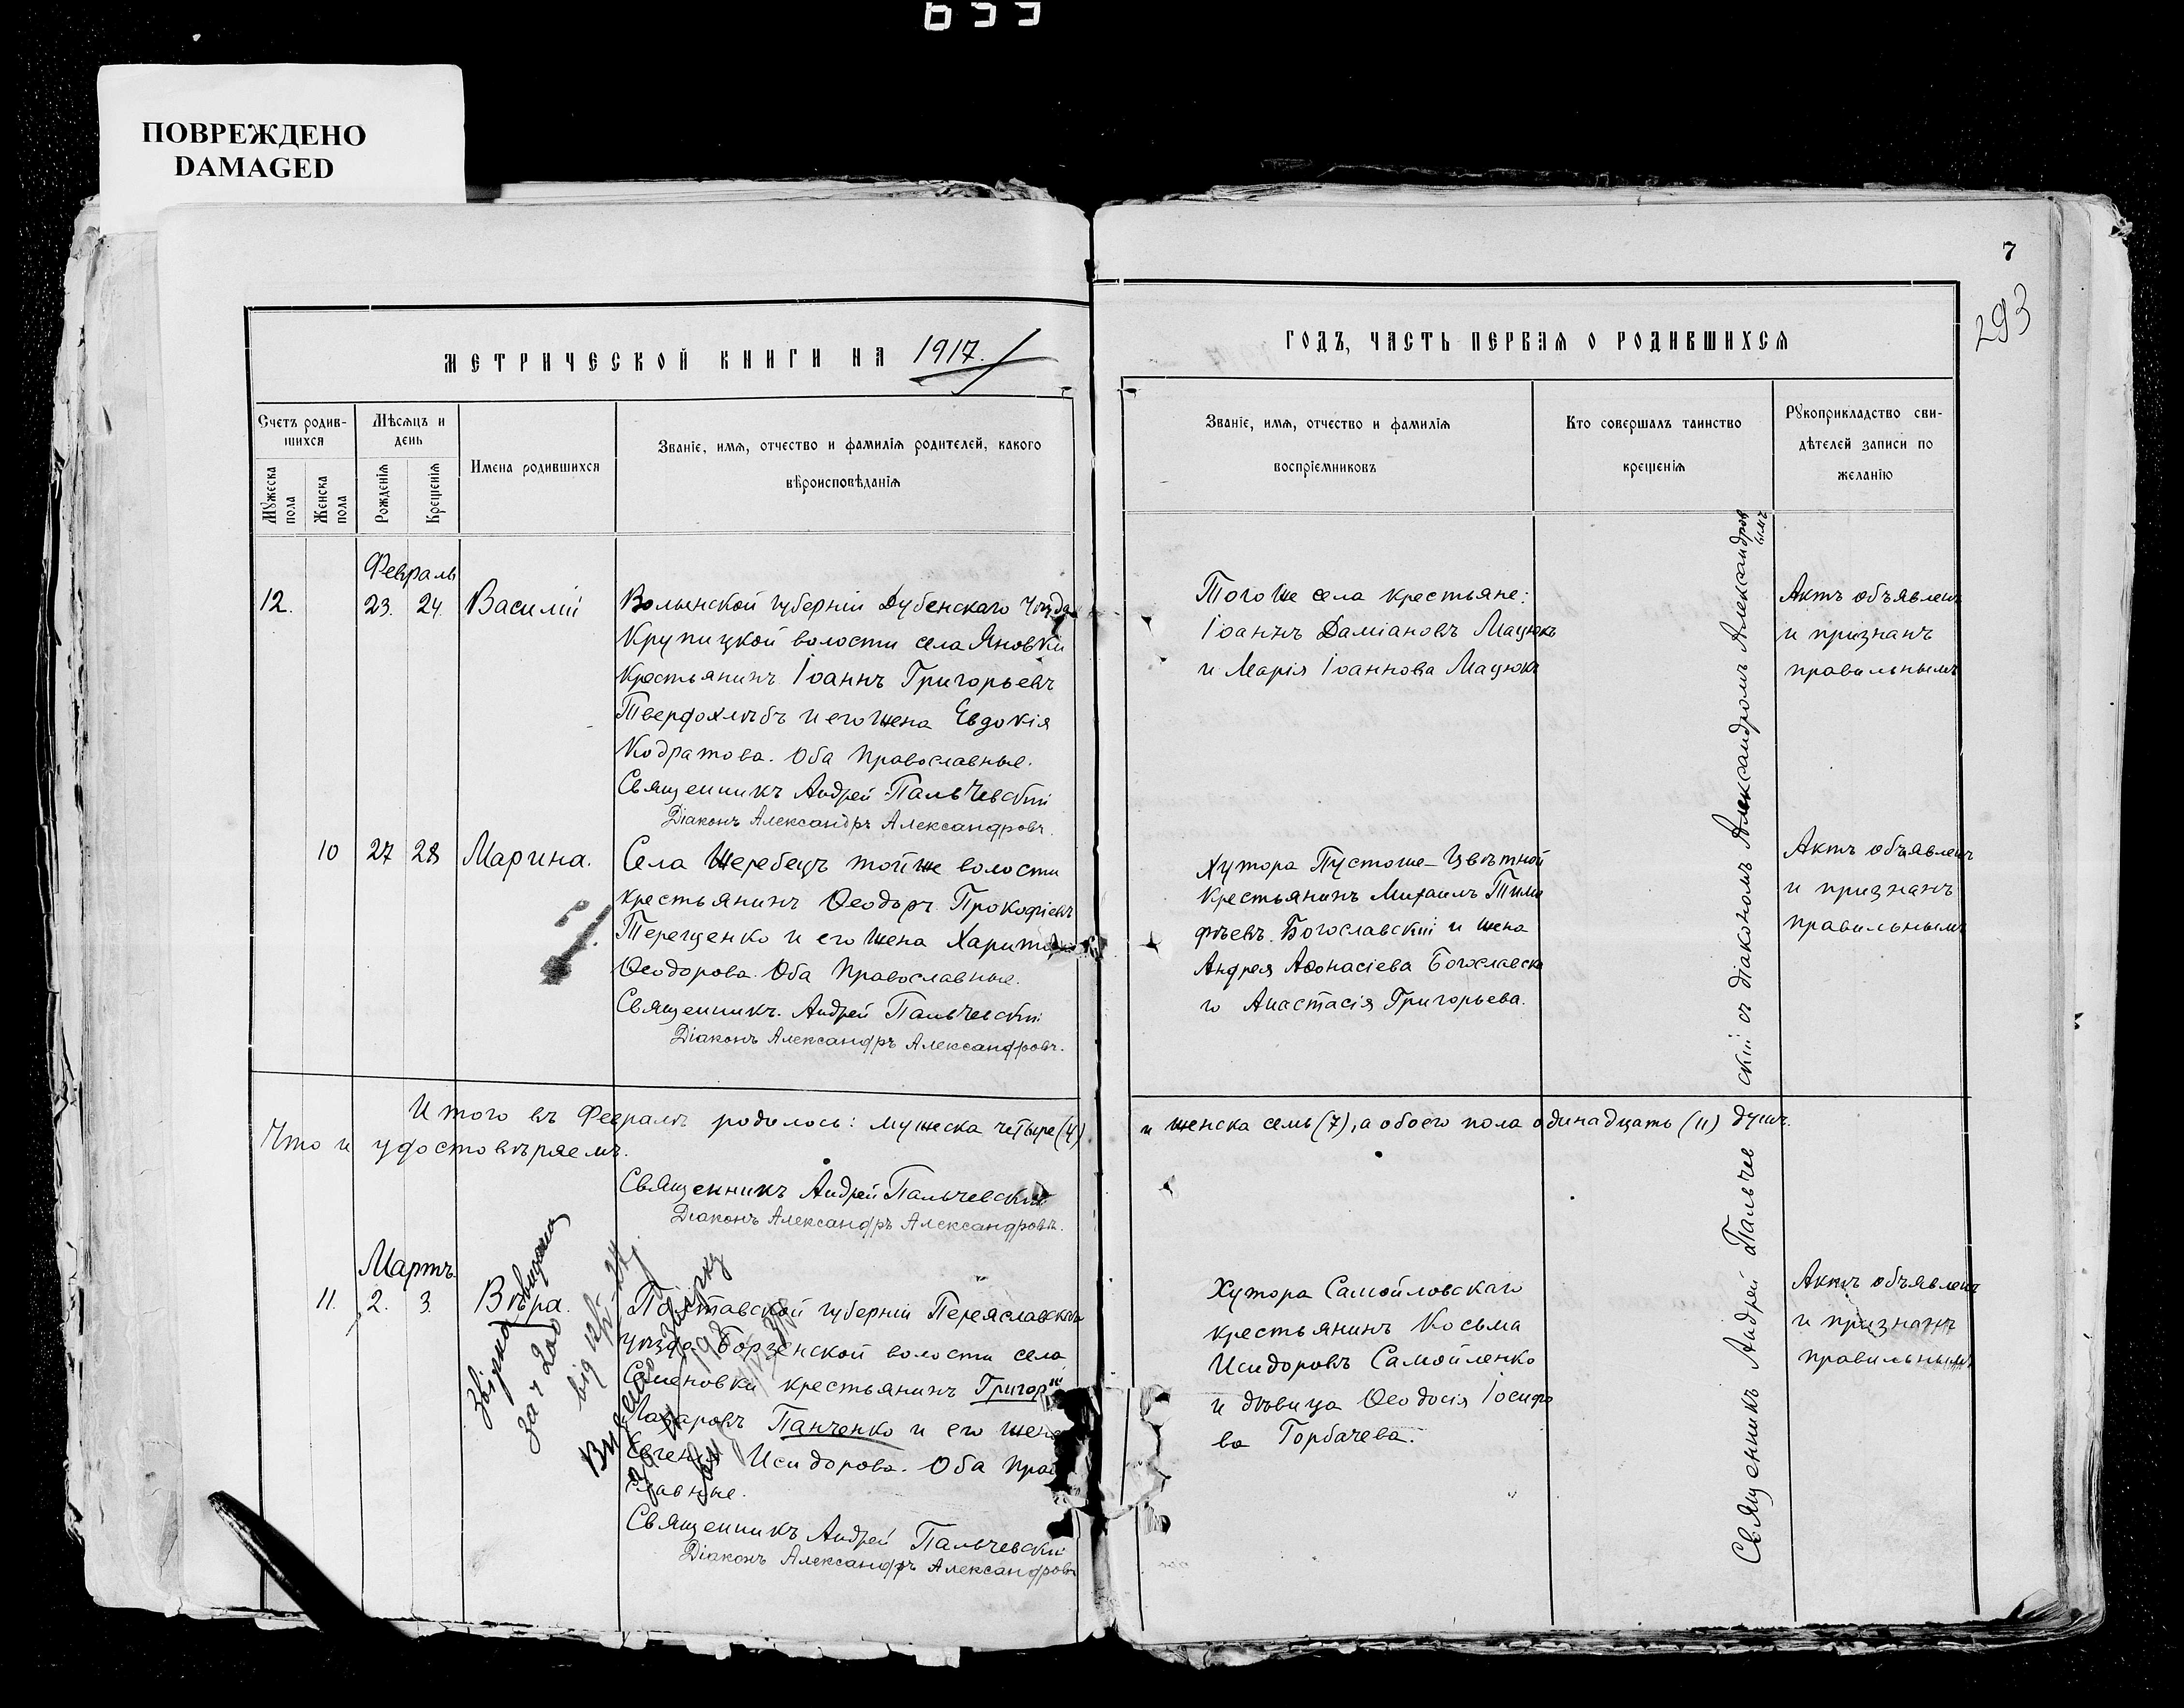 ПОВРЕЖДЕНО
DAMAGED
7
293
МЕТРИЧЕСКОЙ КНИГИ НА 1917.
ГОДЪ, ЧАСТЬ ПЕРВАЯ О РОДИВШИХСЯ
Счетъ родив-
шихся
Мужеска
пола
Женска
пола
Мѣсяцъ и
день
Рожденія
Крещенія
Имена родившихся
Званіе, имя, отчество и фамилія родителей, какого
вѣроисповѣданія
Званіе, имя, отчество и фамилія
воспріемниковъ
Кто совершалъ таинство
крещенія
Рукоприкладство сви-
дѣтелей записи по
желанію
Февраль
12. 23. 24. Василій
Волынской губерніи Дубенскаго уѣзда
Крупицкой волости села Яновки
крестьянинъ Іоаннъ Григорьевъ
Твердохлѣбъ и его жена Евдокія
Кодратова. Оба православные.
Священникъ Андрей Пальчевскій
Діаконъ Александръ Александровъ.
Того же села крестьяне:
Іоаннъ Даміановъ Мацюкъ
и Марія Іоаннова Мацюкъ
Актъ объявленъ
и признанъ
правильнымъ
10 27 28 Марина.
Села Жеребецъ той же волости
крестьянинъ Ѳеодоръ Прокофіевъ
Терещенко и его жена
Ѳеодорова. Оба православные.
Священникъ. Андрей Пальчевскій
Діаконъ Александръ Александровъ.
Хутора Пустоше-Цвѣтной
крестьянинъ Михаилъ Тимо
фѣевъ. Богославскій и жена
Андрея Аѳонасіева Богославска
го Анастасія Григорьева.
Актъ объявленъ
и признанъ
правильнымъ
Итого въ Февралѣ родилось: мужеска четыре (4)
и женска семь (7), а обоего пола одинадцать (11) душъ.
Что и удостовѣряемъ.
Священникъ Андрей Пальчевскій
Діаконъ Александръ Александровъ.
Мартъ.
11. 2. 3. Вѣра.
Полтавской губерніи Переяславскаго
уѣзда волости села
Семеновки крестьянинъ Григорій
Лазаровъ Панченко и его жена
Исидорова. Оба право
славные.
Священникъ Андрей Пальчевскій
Діаконъ Александръ Александровъ
Хутора Самойловскаго
крестьянинъ Косьма
Исидоровъ Самойленко
и дѣвица Ѳеодосія Іосифо
ва Горбачева.
Актъ объявленъ
и признанъ
правильнымъ
Священникъ Андрей Пальчевскій съ діакономъ Александромъ Александров
вымъ